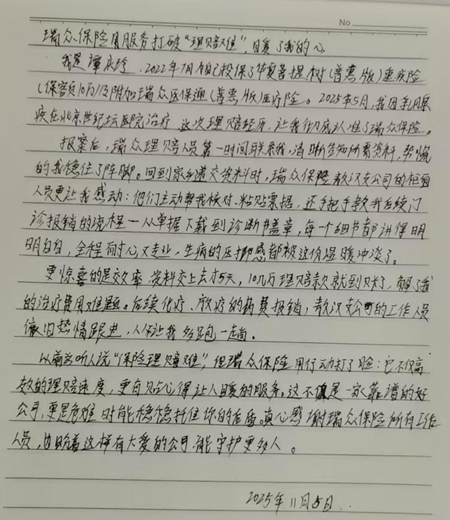 No
瑞众保险用服务打破"理赔难",暖了我的心
我是谭永玲,2022年7月自己投保了华夏菩提树(普惠版)重疾险
(保额10万)及附加瑞众医保通(普惠版)医疗险。2025年5月,我因乳腺
疾在北京世纪坛医院治疗,这次理赔经历,让我彻底认准了瑞众保险。
报案后,瑞众理赔人员第一时间联系我,清晰告知所需资料,帮慌
的我稳住了阵脚。回到家乡递交资料时,瑞众保险敖汉支公司的柜面
人员更让我感动:他们主动帮我核对、粘贴票据,还手把手教我后续门
诊报销的流程—从单据下载到诊断书盖章,每一个细节都讲得明
明白白,全程耐心又专业,生病的压抑感都被这份温暖冲淡了。
更惊喜的是效率,资料交上去才5天,10几万理赔款就到账了,解了我
的治疗费用难题。后续化疗、放疗的药费报销,敖汉支公司的工作人员
依旧热情跟进,从没让我多跑一趟。
以前总听人说"保险理赔难",但瑞众保险用行动打了脸:它不仅高
效的理赔速度,更有贴心得让人暖的服务。这不仅是一家靠谱的好
公司,更是危难时能稳稳托住你的后盾。真心感谢瑞众保险所有工作
人员,也盼着这样有大爱的公司能守护更多人。
2025年11月5日